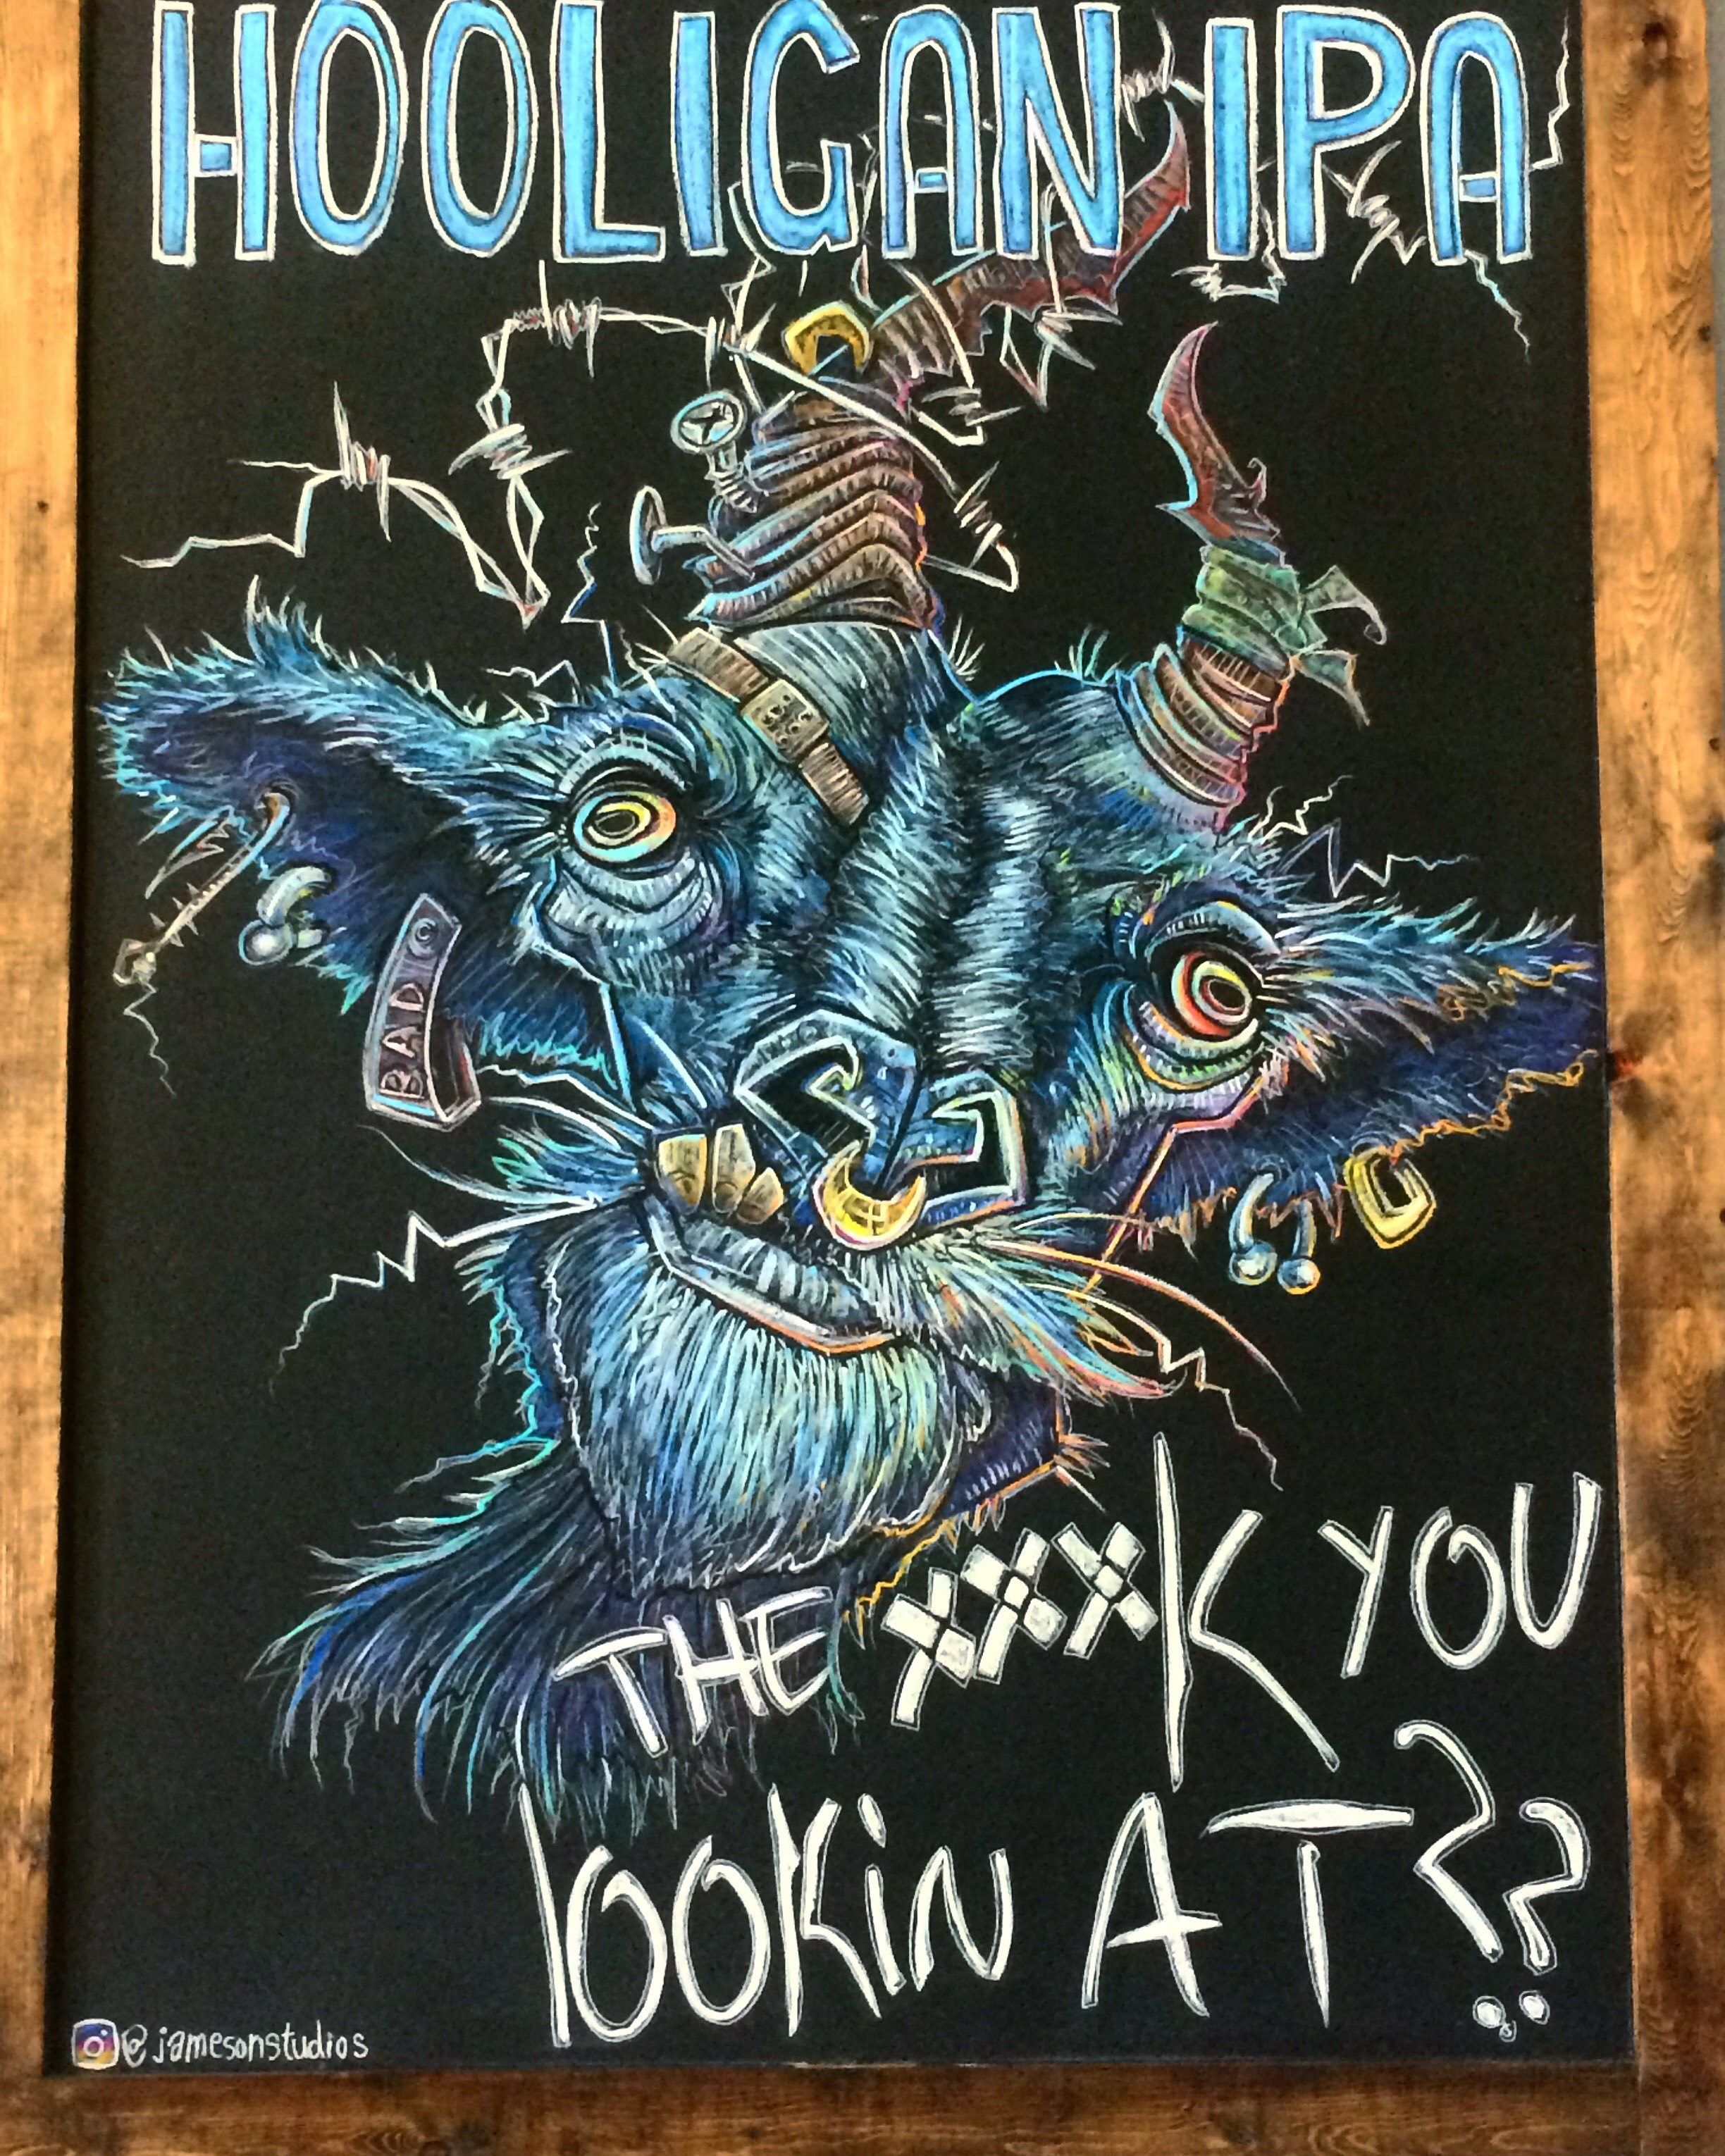 HOOLIGAN IPA
BAD
THE XXXK YOU
lOOKiN AT??
@jamesonstudios